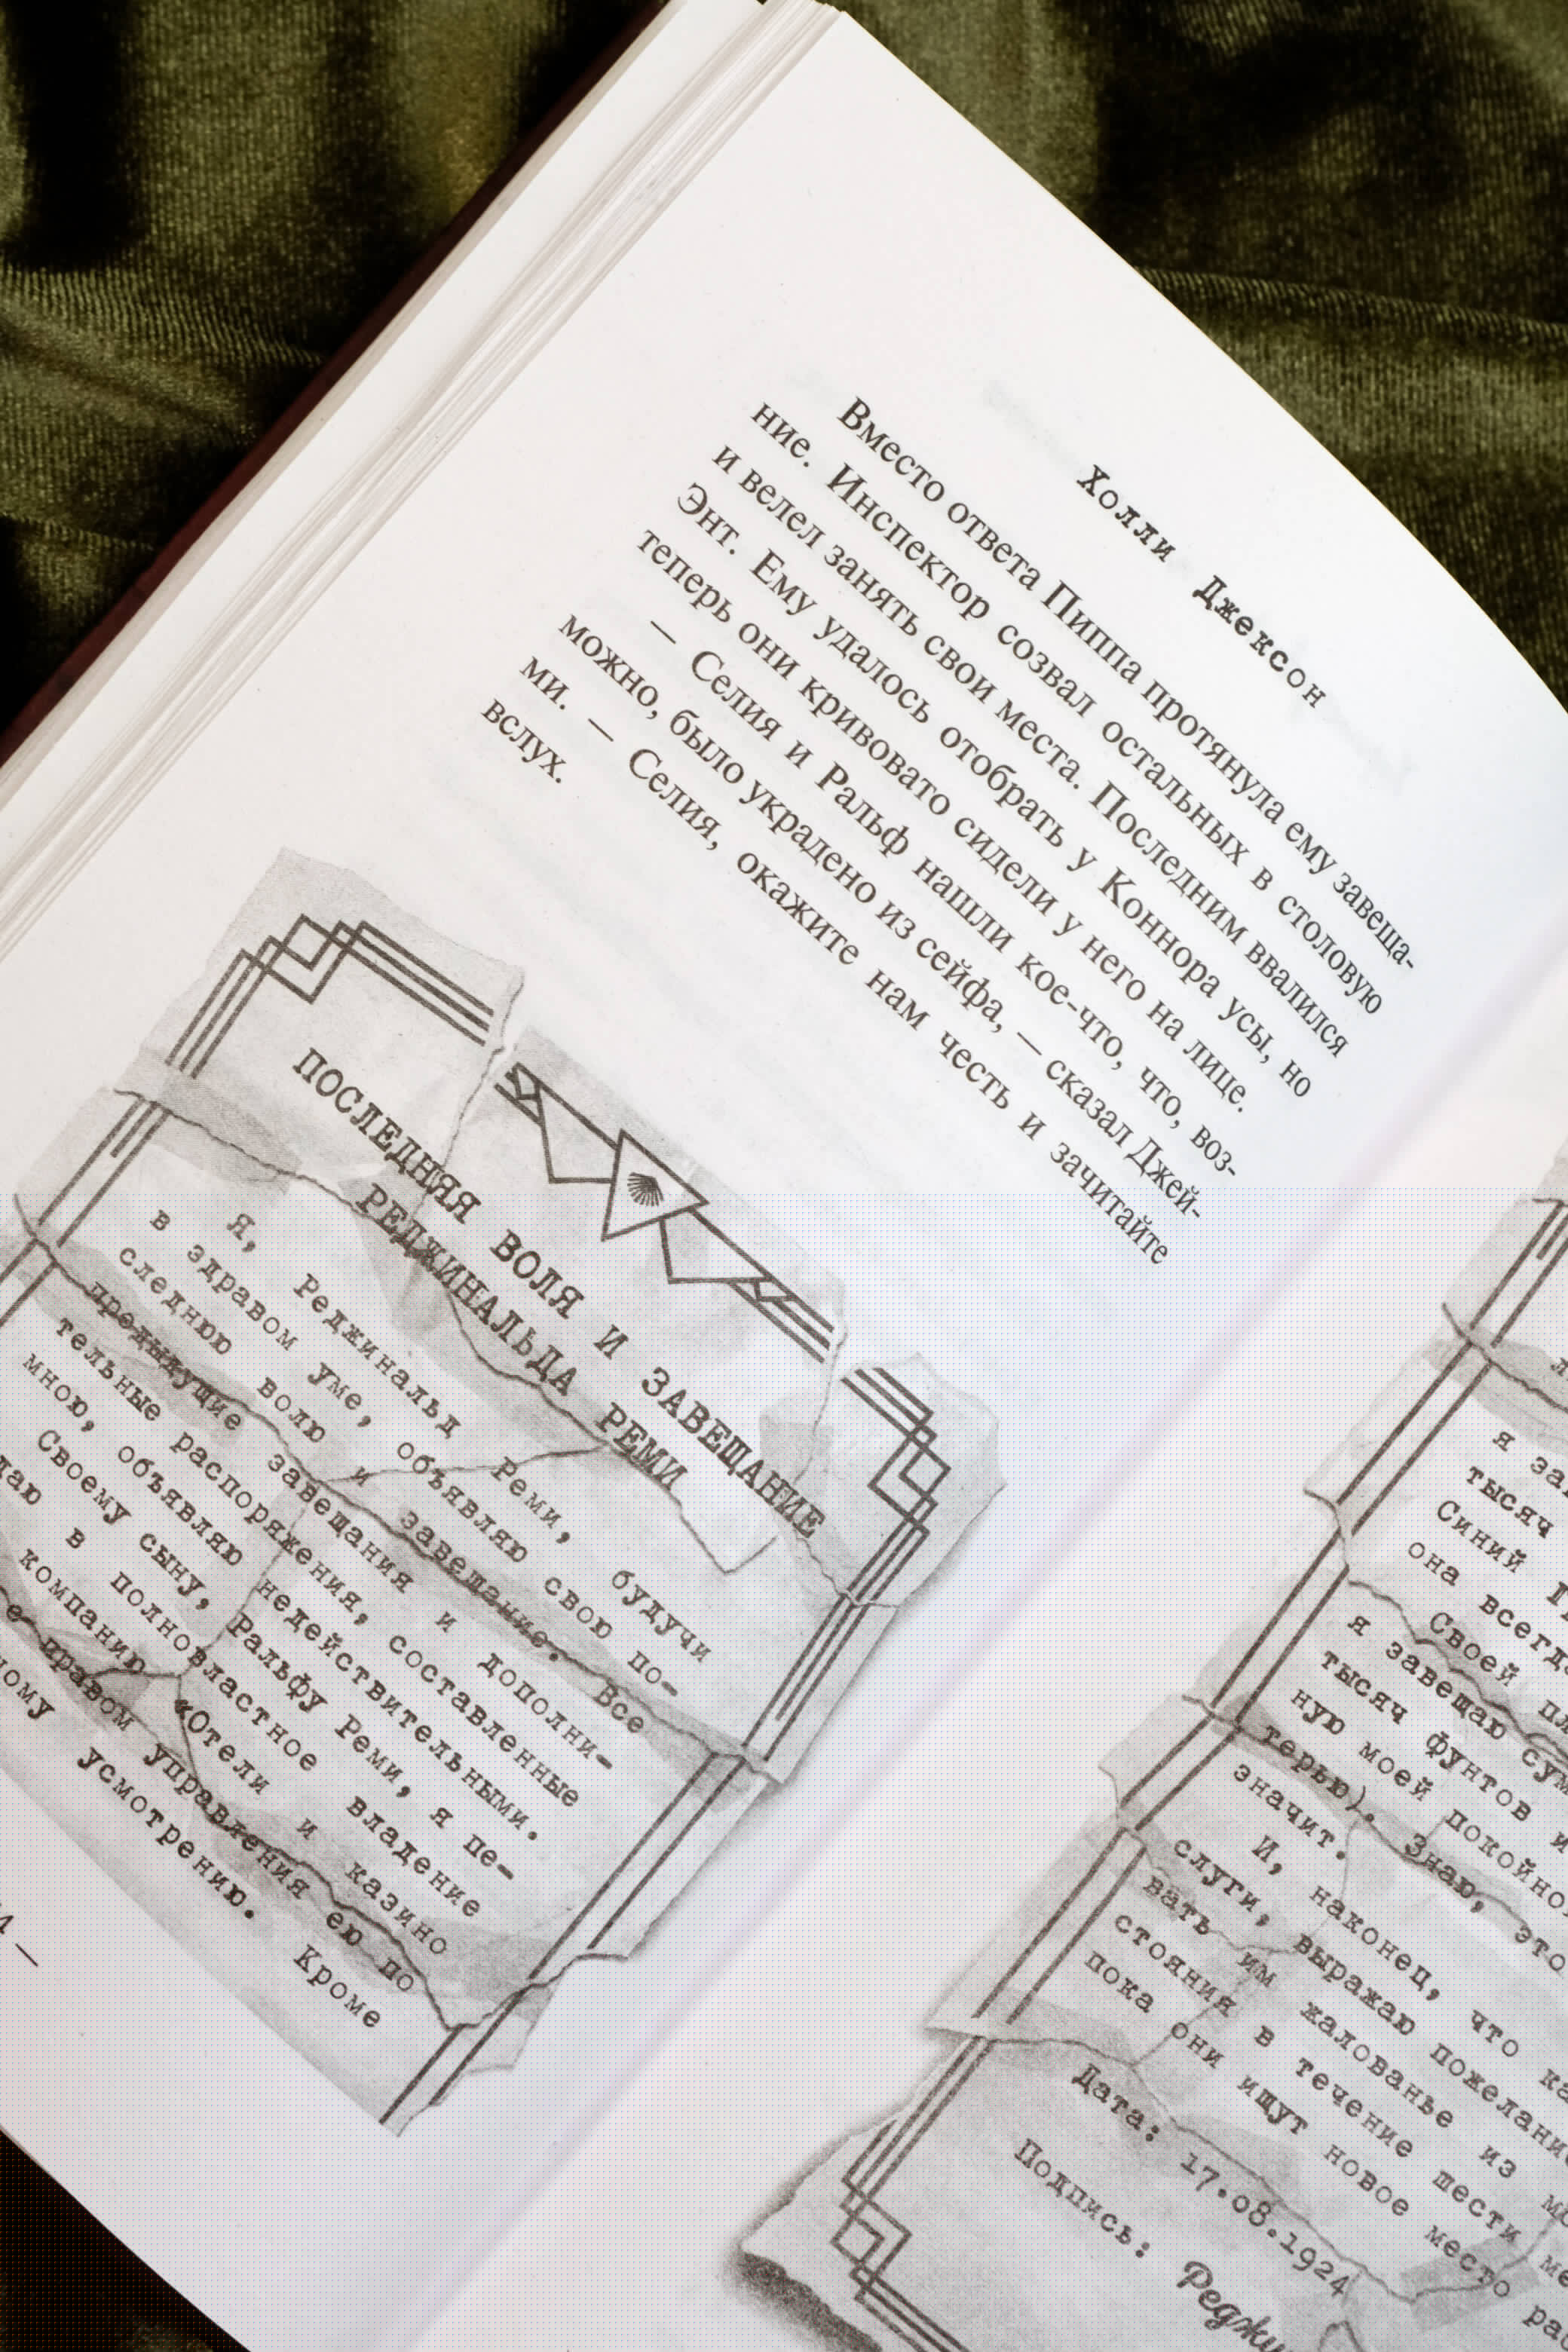 Холли Джексон
Вместо ответа Пиппа протянула ему завеща-
ние. Инспектор созвал остальных в столовую
и велел занять свои места. Последним ввалился
Энт. Ему удалось отобрать у Коннора усы, но
теперь они кривовато сидели у него на лице.
— Селия и Ральф нашли кое-что, что, воз-
можно, было украдено из сейфа, — сказал Джей-
ми. — Селия, окажите нам честь и зачитайте
вслух.
ПОСЛЕДНЯЯ ВОЛЯ И ЗАВЕЩАНИЕ
РЕДЖИНАЛЬДА РЕМИ
Я, Реджинальд Реми, будучи
в здравом уме, объявляю свою по-
следнюю волю и завещание. Все
предыдущие завещания и дополни-
тельные распоряжения, составленные
мною, объявляю недействительными.
Своему сыну, Ральфу Реми, я пе-
в полновластное владение
компанию «Отели и казино
правом управления ею по
усмотрению. Кроме
я
тысяч
Синий
она
Своей
я завещаю
тысяч фунтов и
ную моей покойной
терью). Знаю, это
значит.
И, наконец, что
слуги, выражаю
вать им жалованье из
стояния в течение шести
пока они ищут новое место
Дата: 17.08.1924
Подпись: